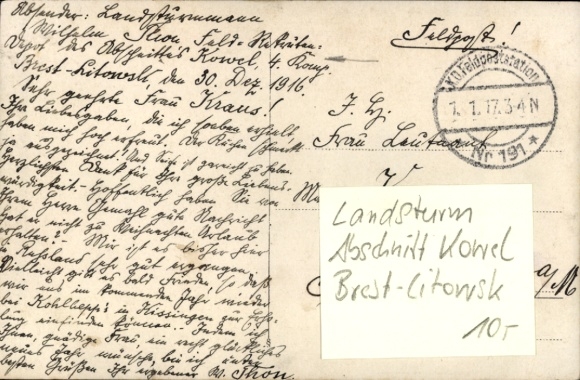 Absender: Landsturmmann
Wilhelm Thon Feld-Rekruten-
Depot des Abschnittes Kowel, 4. Komp.
Brest-Litowsk, den 30. Dez. 1916.
Sehr geehrte Frau Kraus!
Ihre Liebesgaben, die ich soeben erhielt,
haben mich hoch erfreut. Der Kuchen schmeckt
ja ausgezeichnet. Und
herzlichsten Dank für Ihre große Liebens-
würdigkeit. Hoffentlich haben Sie von
Ihrem Herrn Gemahl gute Nachricht.
Hat er nicht zu Weihnachten Urlaub
erhalten? Mir ist es bisher hier
in Russland sehr gut ergangen.
Vielleicht gibt es bald Frieden, so daß
wir uns im kommenden Jahr wieder
bei in Kissingen zur
einfinden können. Indem ich
Ihnen, gnädige Frau, ein recht glückliches
neues Jahr wünsche, bin ich unter
besten Grüßen Ihr ergebener W. Thon.
Feldpost!
K.D. Feldpoststation
1. 1. 17. 3-4 N
Nr 191 *
Frau Leutnant
K
a/M
Landsturm
Abschnitt Kowel
Brest-Litowsk
10,-